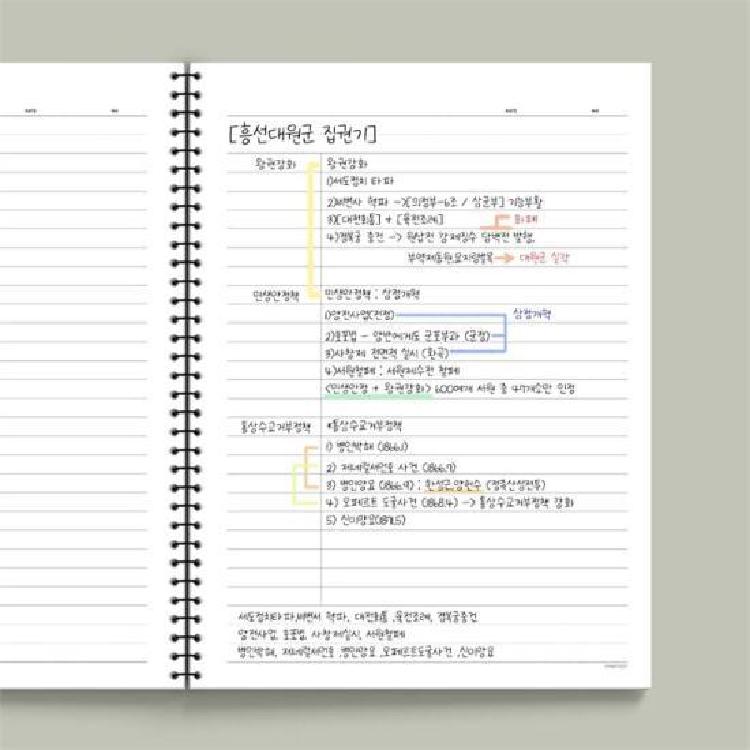 DATE NO
DATE NO
[흥선대원군 집권기]
왕권강화
왕권강화
1)세도정치 타파
2)비변사 혁파 ->[의정부-6조 / 삼군부] 기능부활
3)[대전회통] + [육전조례]
화폐
4)경복궁 중건 -> 원납전 강제징수 당백전 발행,
부역제동원,묘지림벌목
대원군 실각
민생안정책
민생안정책 : 삼정개혁
1)양전사업(전정)
삼정개혁
2)호포법 - 양반에게도 군포부과 (군정)
3)사창제 전면적 실시 (환곡)
4)서원철폐 : 서원제수전 철폐
<민생안정 + 왕권강화> 600여개 서원 중 47개소만 인정
통상수교거부정책
*통상수교거부정책
1) 병인박해 (1866.1)
2) 제네럴셔먼호 사건 (1866.7)
3) 병인양요 (1866.9) : 한성근,양헌수 (정족산성전투)
4) 오페르트 도굴사건 (1868.4) -> 통상수교거부정책 강화
5) 신미양요(1871.5)
세도정치타파,비변서 혁파, 대전회통 ,육전조례, 경복궁중건
양전사업, 호포법, 사창제실시, 서원철폐
병인박해, 제네럴셔먼호 ,병인양요 ,오페르트도굴사건 ,신미양요